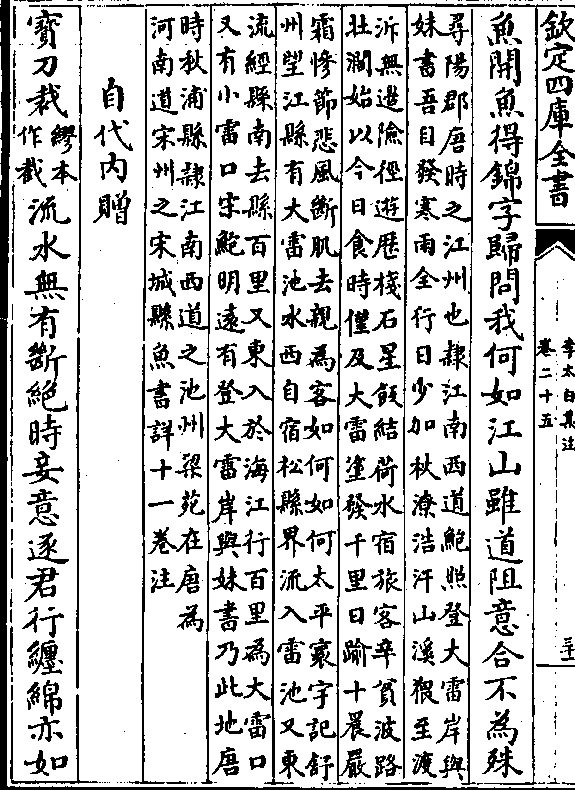 欽定四庫全書
李太白集注
卷二十五
三十一
魚開魚得錦字歸問我何如江山雖道阻意合不為殊
尋陽郡唐時之江州也隸江南西道鮑照登大雷岸與
妹書吾自發寒雨全行日少加秋潦浩汗山溪猥至渡
泝無邊險徑遊歴棧石星飯結荷水宿旅客辛貧波路
壯濶始以今日食時僅及大雷塗發千里日踰十晨嚴
霜慘節悲風斷肌去親為客如何如何太平寰宇記舒
州望江縣有大雷池水西自宿松縣界流入雷池又東
流經縣南去縣百里又東入於海江行百里為大雷口
又有小雷口宋鮑明遠有登大雷岸與妹書乃此地唐
時秋浦縣隸江南西道之池州梁苑在唐為
河南道宋州之宋城縣魚書詳十一卷注
自代內贈
寶刀裁繆本作截流水無有斷絶時妾意逐君行纏綿亦如